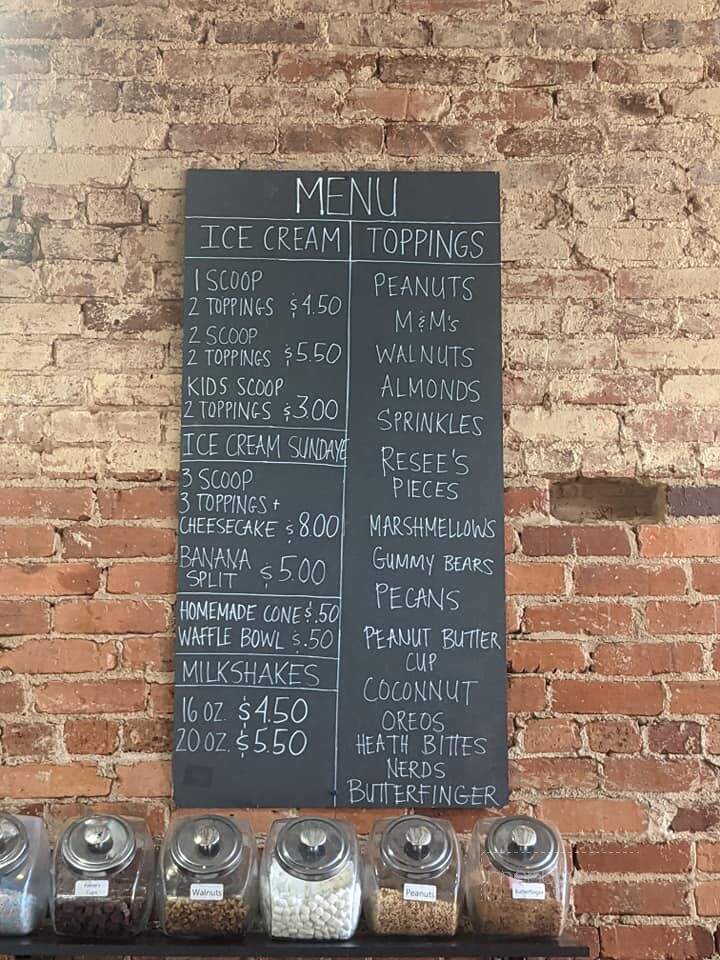 MENU
ICE CREAM
1 SCOOP
2 TOPPINGS $4.50
2 SCOOP
2 TOPPINGS $5.50
KIDS SCOOP
2 TOPPINGS $3.00
ICE CREAM SUNDAYE
3 SCOOP
3 TOPPINGS +
CHEESECAKE $8.00
BANANA
SPLIT $5.00
HOMEMADE CONE $.50
WAFFLE BOWL $.50
MILKSHAKES
16 OZ. $4.50
20 OZ. $5.50
TOPPINGS
PEANUTS
M&M's
WALNUTS
ALMONDS
SPRINKLES
RESEE'S
PIECES
MARSHMELLOWS
GUMMY BEARS
PECANS
PEANUT BUTTER
CUP
COCONNUT
OREOS
HEATH BITTES
NERDS
BUTTERFINGER
Walnuts
Peanuts
Butterfinger